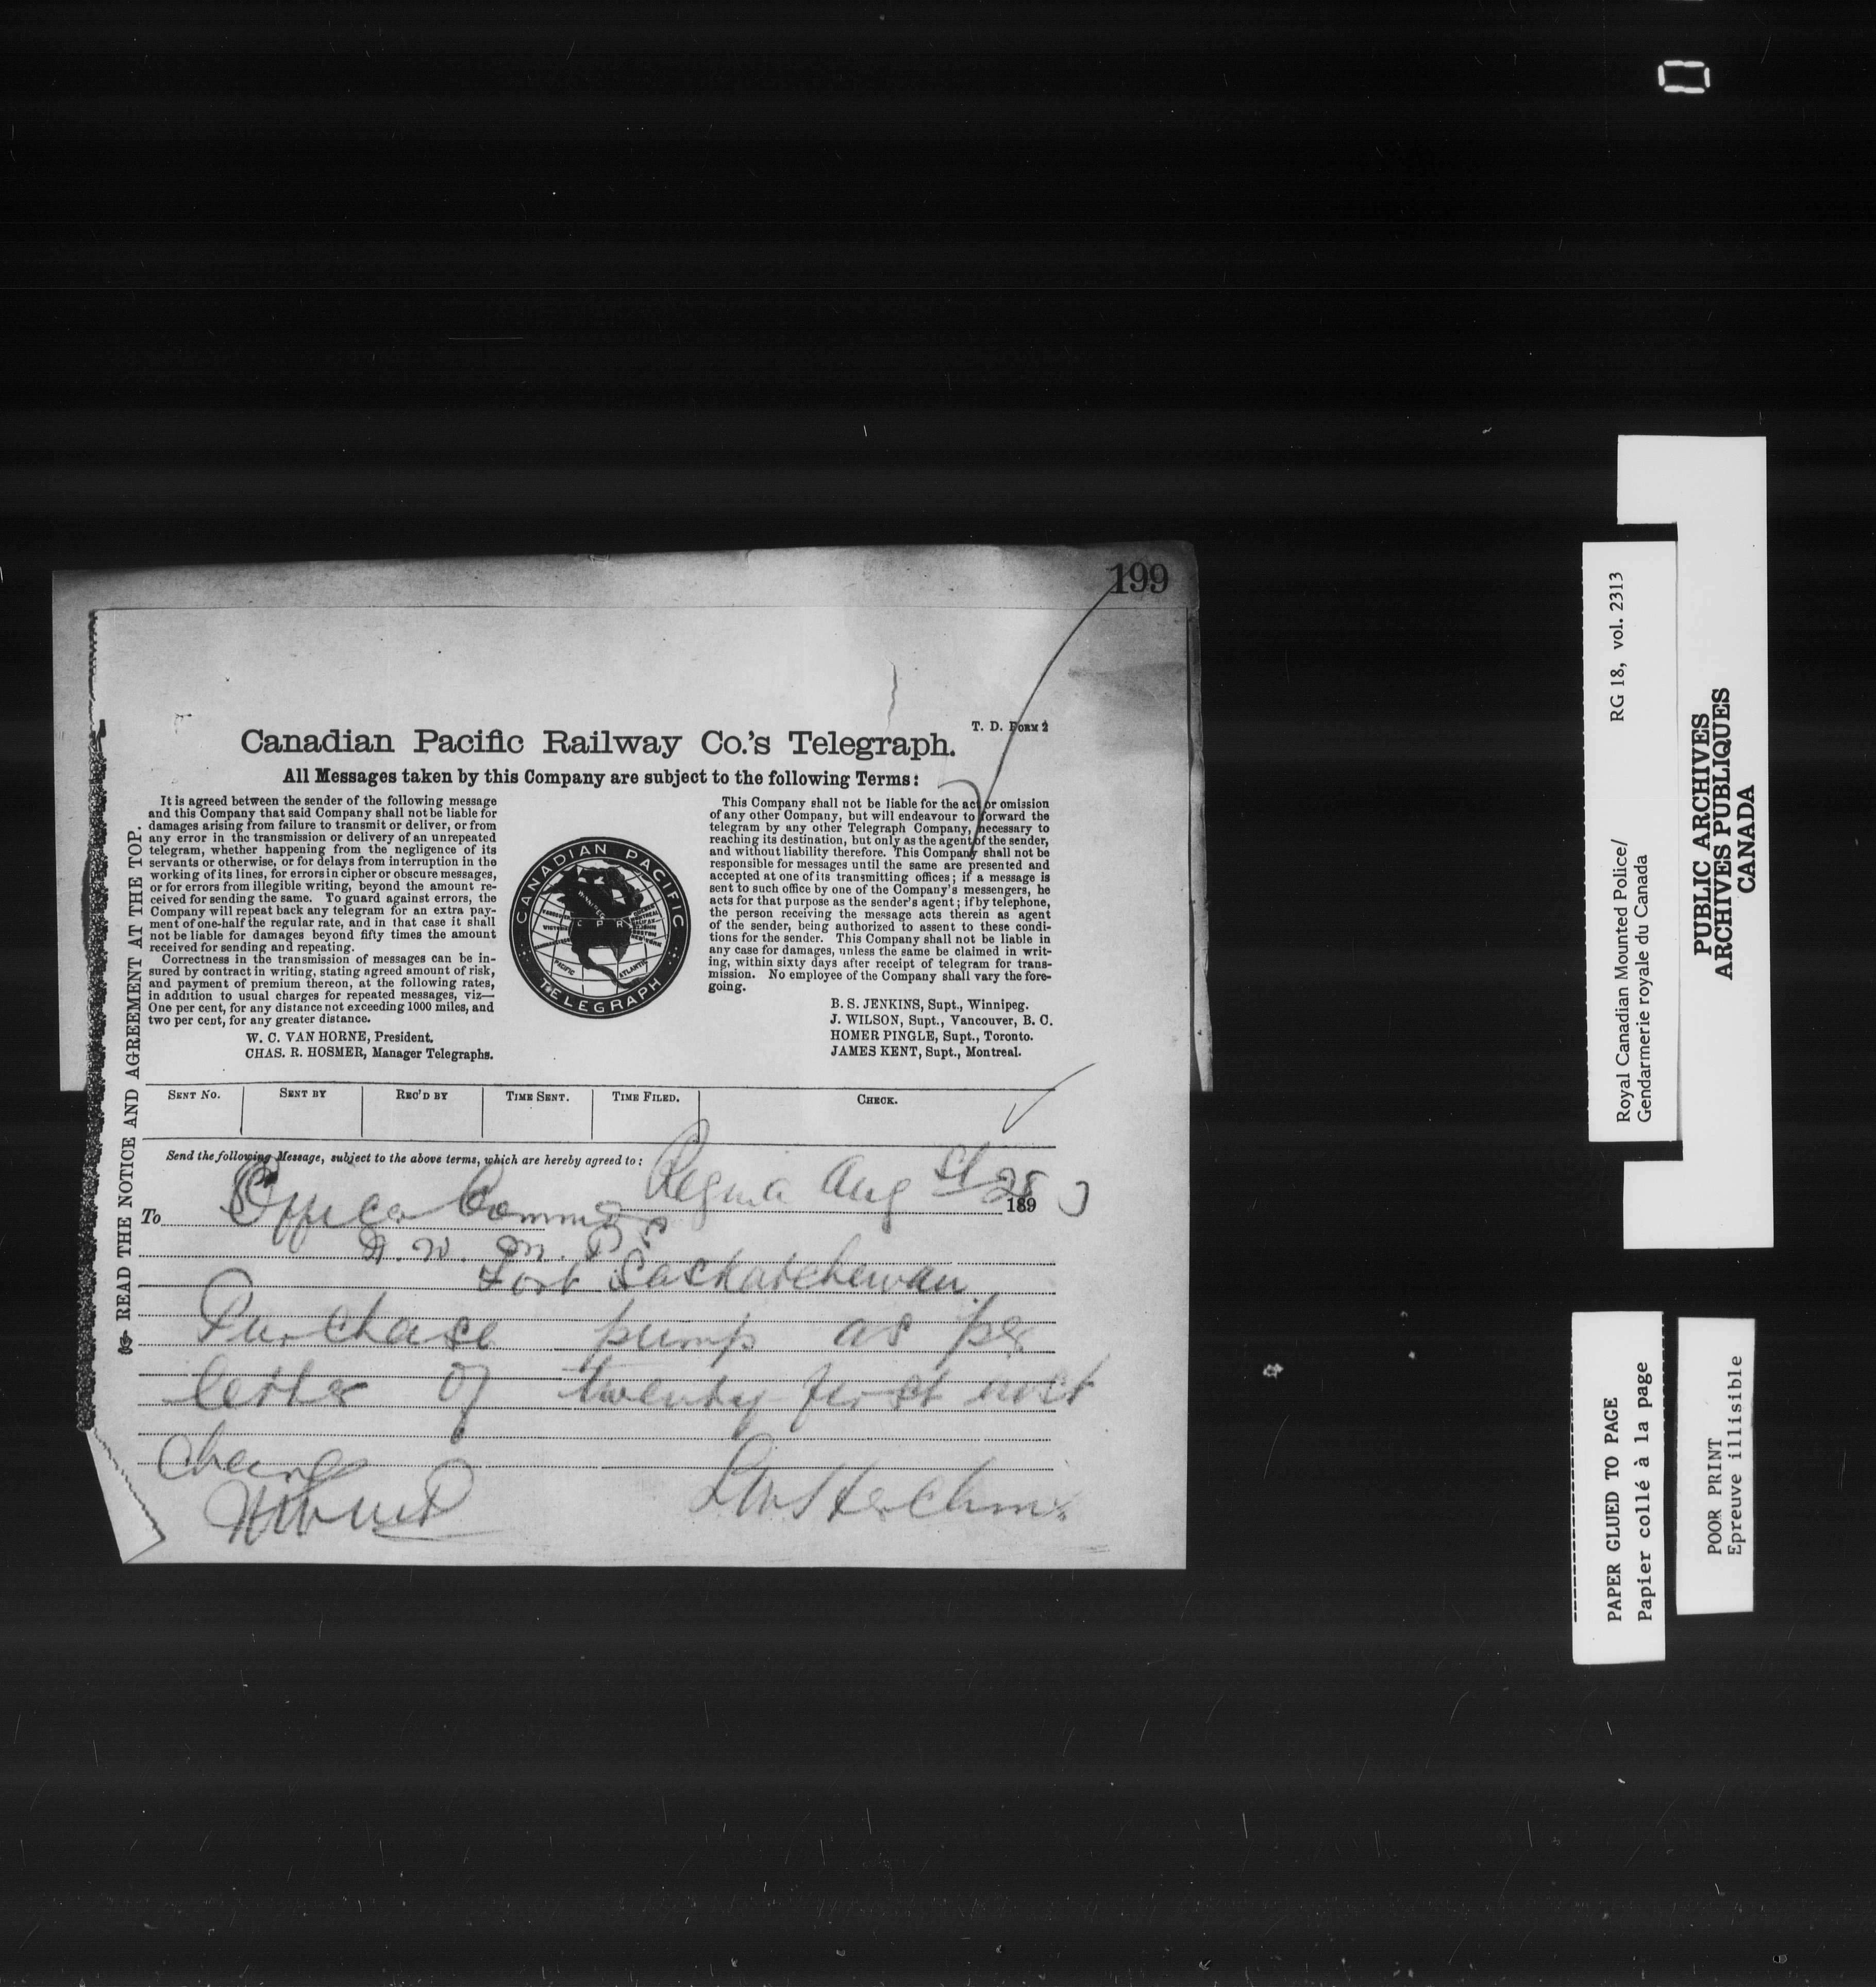 199
T. D. Form 2
Canadian Pacific Railway Co.'s Telegraph.
All Messages taken by this Company are subject to the following Terms:
It is agreed between the sender of the following message
and this Company that said Company shall not be liable for
damages arising from failure to transmit or deliver, or from
any error in the transmission or delivery of an unrepeated
telegram, whether happening from the negligence of its
servants or otherwise, or for delays from interruption in the
working of its lines, for errors in cipher or obscure messages,
or for errors from illegible writing, beyond the amount re-
ceived for sending the same. To guard against errors, the
Company will repeat back any telegram for an extra pay-
ment of one-half the regular rate, and in that case it shall
not be liable for damages beyond fifty times the amount
received for sending and repeating.
Correctness in the transmission of messages can be in-
sured by contract in writing, stating agreed amount of risk,
and payment of premium thereon, at the following rates,
in addition to usual charges for repeated messages, viz—
One per cent, for any distance not exceeding 1000 miles, and
two per cent, for any greater distance.
W. C. VAN HORNE, President.
CHAS. R. HOSMER, Manager Telegraphs.
CANADIAN PACIFIC
C P R
PACIFIC
ATLANTIC
TELEGRAPH
This Company shall not be liable for the act or omission
of any other Company, but will endeavour to forward the
telegram by any other Telegraph Company, necessary to
reaching its destination, but only as the agent of the sender,
and without liability therefore. This Company shall not be
responsible for messages until the same are presented and
accepted at one of its transmitting offices; if a message is
sent to such office by one of the Company's messengers, he
acts for that purpose as the sender's agent; if by telephone,
the person receiving the message acts therein as agent
of the sender, being authorized to assent to these condi-
tions for the sender. This Company shall not be liable in
any case for damages, unless the same be claimed in writ-
ing, within sixty days after receipt of telegram for trans-
mission. No employee of the Company shall vary the fore-
going.
B. S. JENKINS, Supt., Winnipeg.
J. WILSON, Supt., Vancouver, B. C.
HOMER PINGLE, Supt., Toronto.
JAMES KENT, Supt., Montreal.
READ THE NOTICE AND AGREEMENT AT THE TOP.
SENT No. SENT BY REC'D BY TIME SENT. TIME FILED. CHECK.
Send the following Message, subject to the above terms, which are hereby agreed to:
Regina Aug 28
189
To Officer Commdg
N. W. M. P.
Fort Saskatchewan
Purchase pump as per
letter of twenty first inst
Charge
L W Herchmer
RG 18, vol. 2313
Royal Canadian Mounted Police/
Gendarmerie royale du Canada
PUBLIC ARCHIVES
ARCHIVES PUBLIQUES
CANADA
PAPER GLUED TO PAGE
Papier collé à la page
POOR PRINT
Epreuve illisible